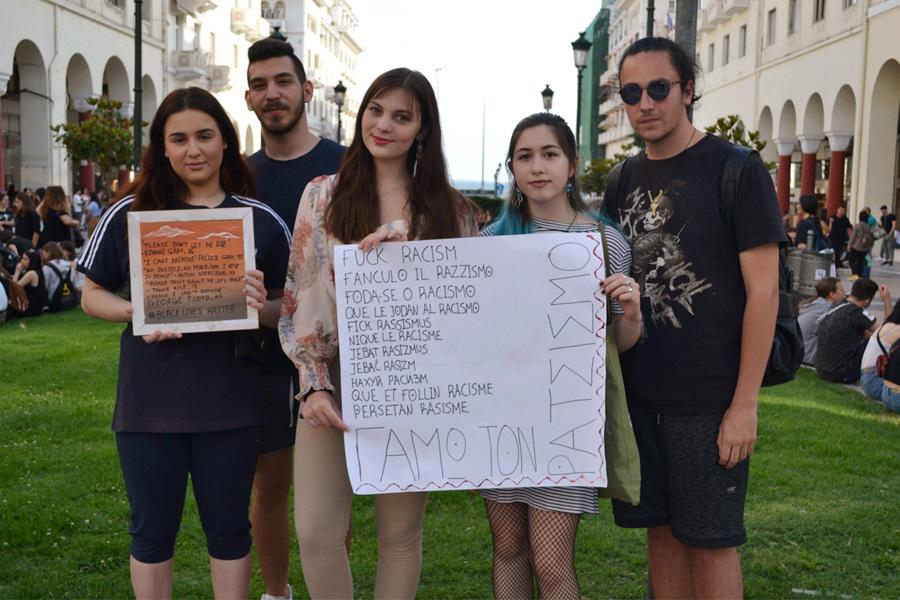 "PLEASE DON'T LET ME DIE"
KIMANI GRAY, 16
"I CAN'T BREATHE" FREDDIE GRAY, 25
GEORGE FLOYD, 46
#BLACK LIVES MATTER
FUCK RACISM
FANCULO IL RAZZISMO
FODA-SE O RACISMO
QUE LE JODAN AL RACISMO
FICK RASSISMUS
NIQUE LE RACISME
JEBAT RASIZMUS
JEBAĆ RASIZM
НАХУЙ РАСИЗМ
QUE ET FOLLIN RACISME
PERSETAN RASISME
ΓΑΜΩ ΤΟΝ
ΡΑΤΣΙΣΜΟ